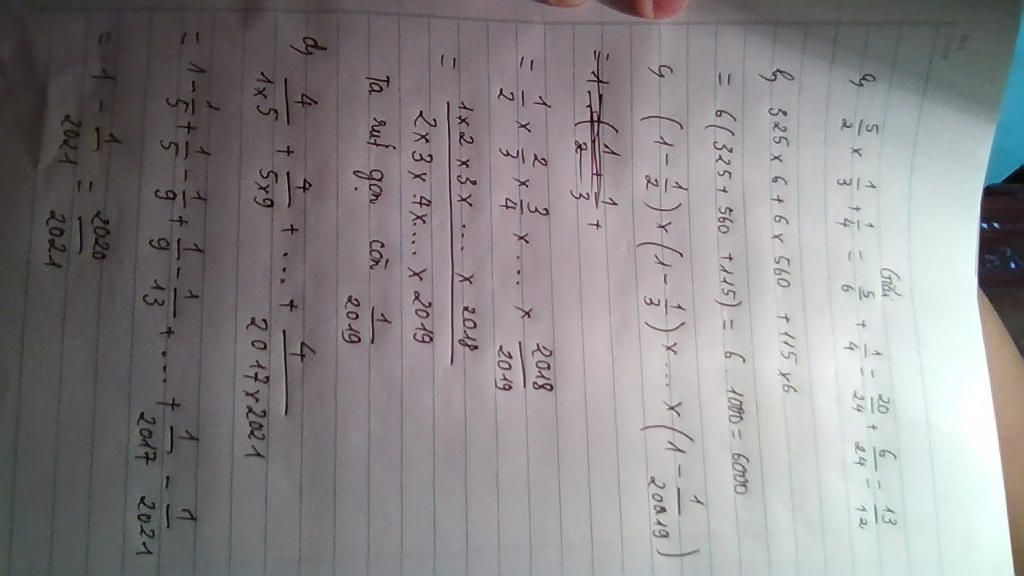 Giải
a, 5/2 × 1/3 + 1/4 = 5/6 + 1/4 = 20/24 + 6/24 = 13/12
b, 325 × 6 + 6 × 560 + 115 × 6
= 6 (325 + 560 + 115) = 6 . 1000 = 6000
c, (1 - 1/2) × (1 - 1/3) × ... × (1 - 1/2019)
= 1/2 × 2/3 × 3/4 × .... × 2018/2019
= 1 × 2 × 3 × .... × 2018 / 2 × 3 × 4 × ... × 2019
Ta rút gọn còn 1/2019
d, 4/1×5 + 4/5×9 + .... + 4/2017×2021
= 1 - 1/5 + 1/5 - 1/9 + 1/9 - 1/13 + .... + 1/2017 - 1/2021
= 1 - 1/2021 = 2020/2021